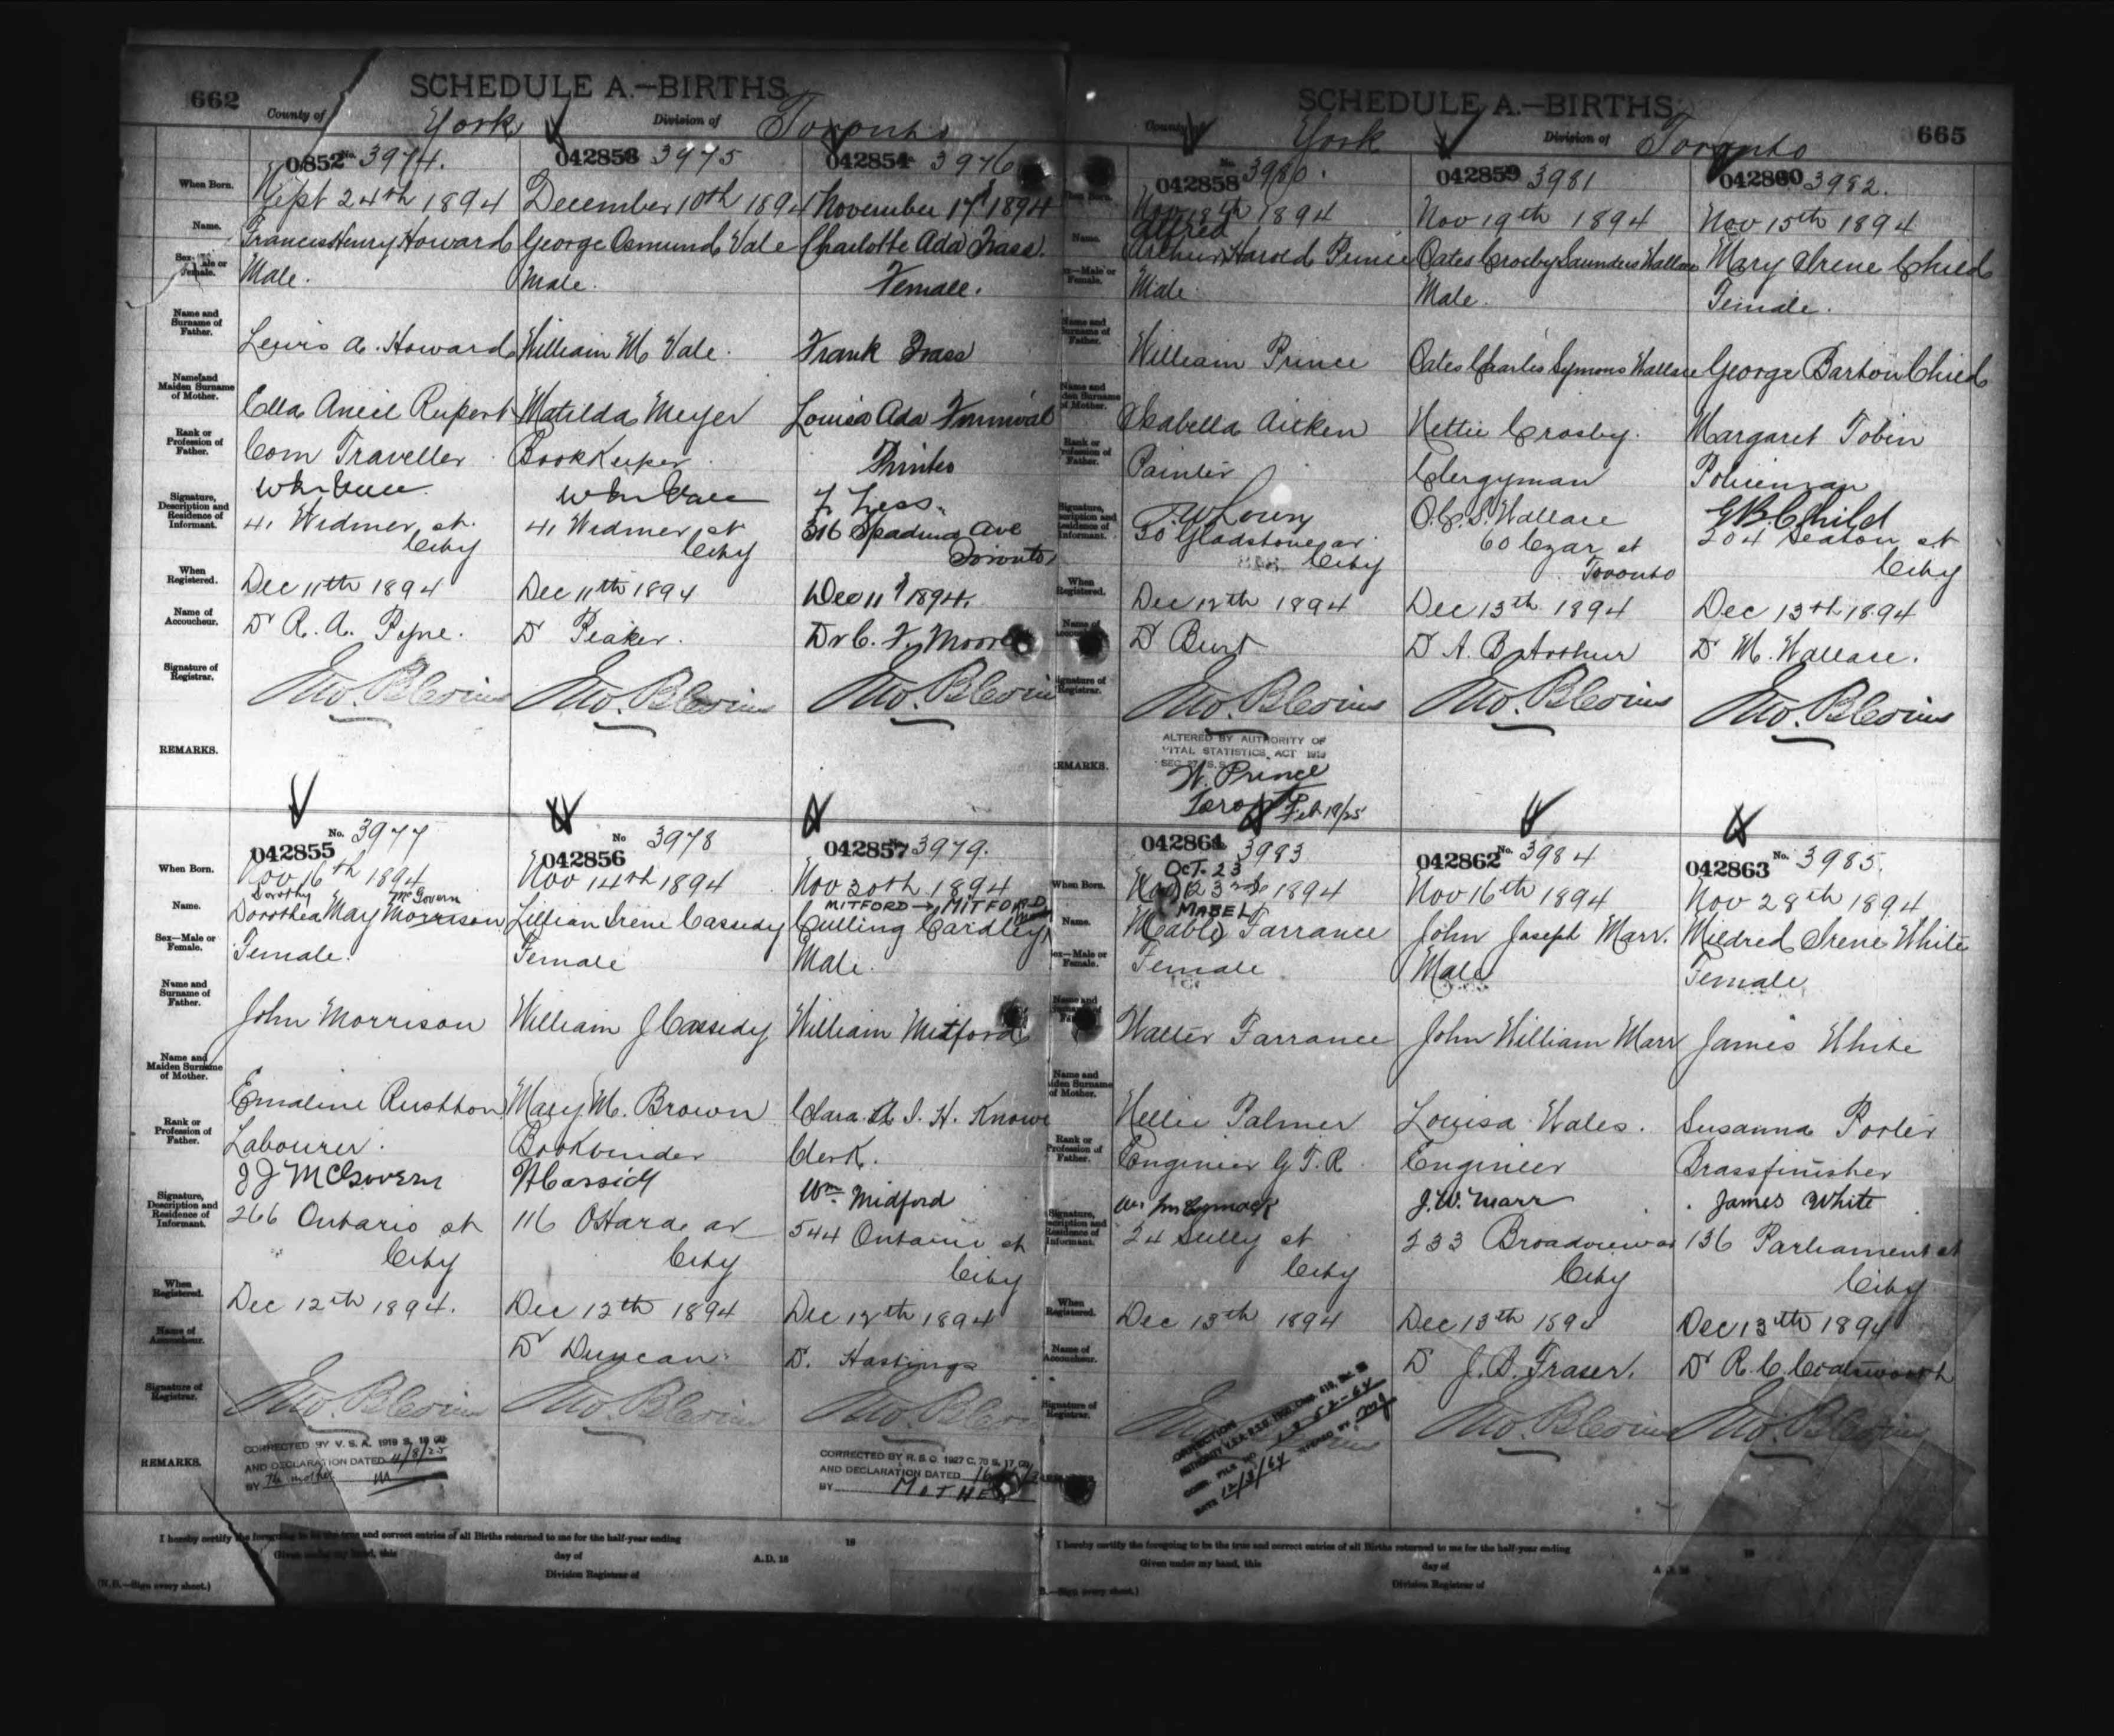 662
SCHEDULE A.—BIRTHS
County of York Division of Toronto
No. 3974.
042853 3975
042854 3976
When Born.
Sept 24th 1894
December 10th 1894
November 17 1894
Name.
Francis Henry Howard
George Osmund Vale
Charlotte Ada
Sex—Male or Female.
Male.
Male.
Female.
Name and Surname of Father.
Lewis A. Howard
William M Vale.
Frank
Name and Maiden Surname of Mother.
Ella Rupert
Matilda Meyer
Louisa Ada
Rank or Profession of Father.
Com Traveller
BookKeeper
Printer
Signature, Description and Residence of Informant.
41 Widmer st.
City
41 Widmer st
City
316 Spadina Ave
Toronto
When Registered.
Dec 11th 1894
Dec 11th 1894
Dec 11 1894.
Name of Accoucheur.
Dr R. A. Pyne.
Dr Peaker.
Dr C. F. Moore
Signature of Registrar.
Jno. Blevins
Jno. Blevins
Jno. Blevins
REMARKS.
042855 No. 3977
042856 No 3978
042857 3979.
When Born.
Nov 16th 1894
Nov 14th 1894
Nov 30th 1894
Name.
Dorothy McGovern
Dorothea May Morrison
Lillian Irene Cassidy
MITFORD → MITFORD
Culling Eardley
Sex—Male or Female.
Female.
Female
Male.
Name and Surname of Father.
John Morrison
William J Cassidy
William Mitford
Name and Maiden Surname of Mother.
Emaline Rushton
Mary M. Brown
Clara A I. H.
Rank or Profession of Father.
Labourer.
Bookbinder
Clerk.
Signature, Description and Residence of Informant.
J J McGovern
266 Ontario st
City
W Cassidy
116 OHara av
City
Wm Midford
544 Ontario st
City
When Registered.
Dec 12th 1894.
Dec 12th 1894
Dec 12th 1894
Name of Accoucheur.
Dr Duncan.
D. Hastings
Signature of Registrar.
Jno. Blevins
Jno. Blevins
Jno. Blevins
REMARKS.
CORRECTED BY V. S. A. 1919
AND DECLARATION DATED 11/8/25
BY The mother
CORRECTED BY R. S. O. 1927 C. 78 S. 17
AND DECLARATION DATED
BY MOTHER
I hereby certify the foregoing to be the true and correct entries of all Births returned to me for the half-year ending 18
Given under my hand, this day of A.D. 18
Division Registrar of
(N.B.—Sign every sheet.)
665
SCHEDULE A.—BIRTHS
County of York Division of Toronto
042858 No. 3980.
042859 3981
042860 3982.
When Born.
Nov 18th 1894
Nov 19th 1894
Nov 15th 1894
Name.
Alfred
Arthur Harold Prince
Oates Crosby Saunders Wallace
Mary Irene Child
Sex—Male or Female.
Male
Male.
Female.
Name and Surname of Father.
William Prince
Oates Charles Symons Wallace
George Barton Child
Name and Maiden Surname of Mother.
Isabella Aitken
Nettie Crosby.
Margaret Tobin
Rank or Profession of Father.
Painter
Clergyman
Policeman
Signature, Description and Residence of Informant.
30 Gladstone av.
City
O. C. S. Wallace
60 Czar st
Toronto
G B Child
204 Seaton st
City
When Registered.
Dec 12th 1894
Dec 13th 1894
Dec 13th 1894
Name of Accoucheur.
Dr Burt
Dr A. B.
Dr M. Wallace.
Signature of Registrar.
Jno. Blevins
Jno. Blevins
Jno. Blevins
REMARKS.
ALTERED BY AUTHORITY OF
VITAL STATISTICS ACT 1919
W. Prince
Toronto Feb 19/25
042861 3983
042862 No. 3984
042863 No. 3985.
When Born.
OCT. 23
Nov 23rd 1894
Nov 16th 1894
Nov 28th 1894
Name.
MABEL
Meable Farrance
John Joseph Marr.
Mildred Irene White
Sex—Male or Female.
Female
Male
Female
Name and Surname of Father.
Walter Farrance
John William Marr
James White
Name and Maiden Surname of Mother.
Nellie Palmer
Louisa Wales.
Susanna Porter
Rank or Profession of Father.
Engineer G. T. R.
Engineer
Brassfinisher
Signature, Description and Residence of Informant.
24 Sully st
City
J. W. Marr
233 Broadview av
City
James White
136 Parliament st
City
When Registered.
Dec 13th 1894
Dec 13th 1894
Dec 13th 1894
Name of Accoucheur.
Dr J. B. Fraser.
Dr R. C. Coatsworth
Signature of Registrar.
Jno. Blevins
Jno. Blevins
REMARKS.
DATE 12/3/64
I hereby certify the foregoing to be the true and correct entries of all Births returned to me for the half-year ending 18
Given under my hand, this day of A.D. 18
Division Registrar of